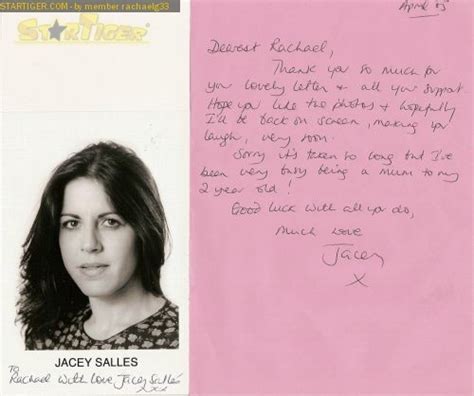 STARTIGER.COM - by member rachaelg33
STARTIGER
JACEY SALLES
To
Rachael With Love Jacey Salles
xxx
April '05
Dearest Rachael,
Thank you so much for
your lovely letter & all your support.
Hope you like the photos & hopefully
I'll be back on screen, making you
laugh, very soon.
Sorry it's taken so long but I've
been very busy being a Mum to my
2 year old!
Good luck with all you do,
Much Love
Jacey
X